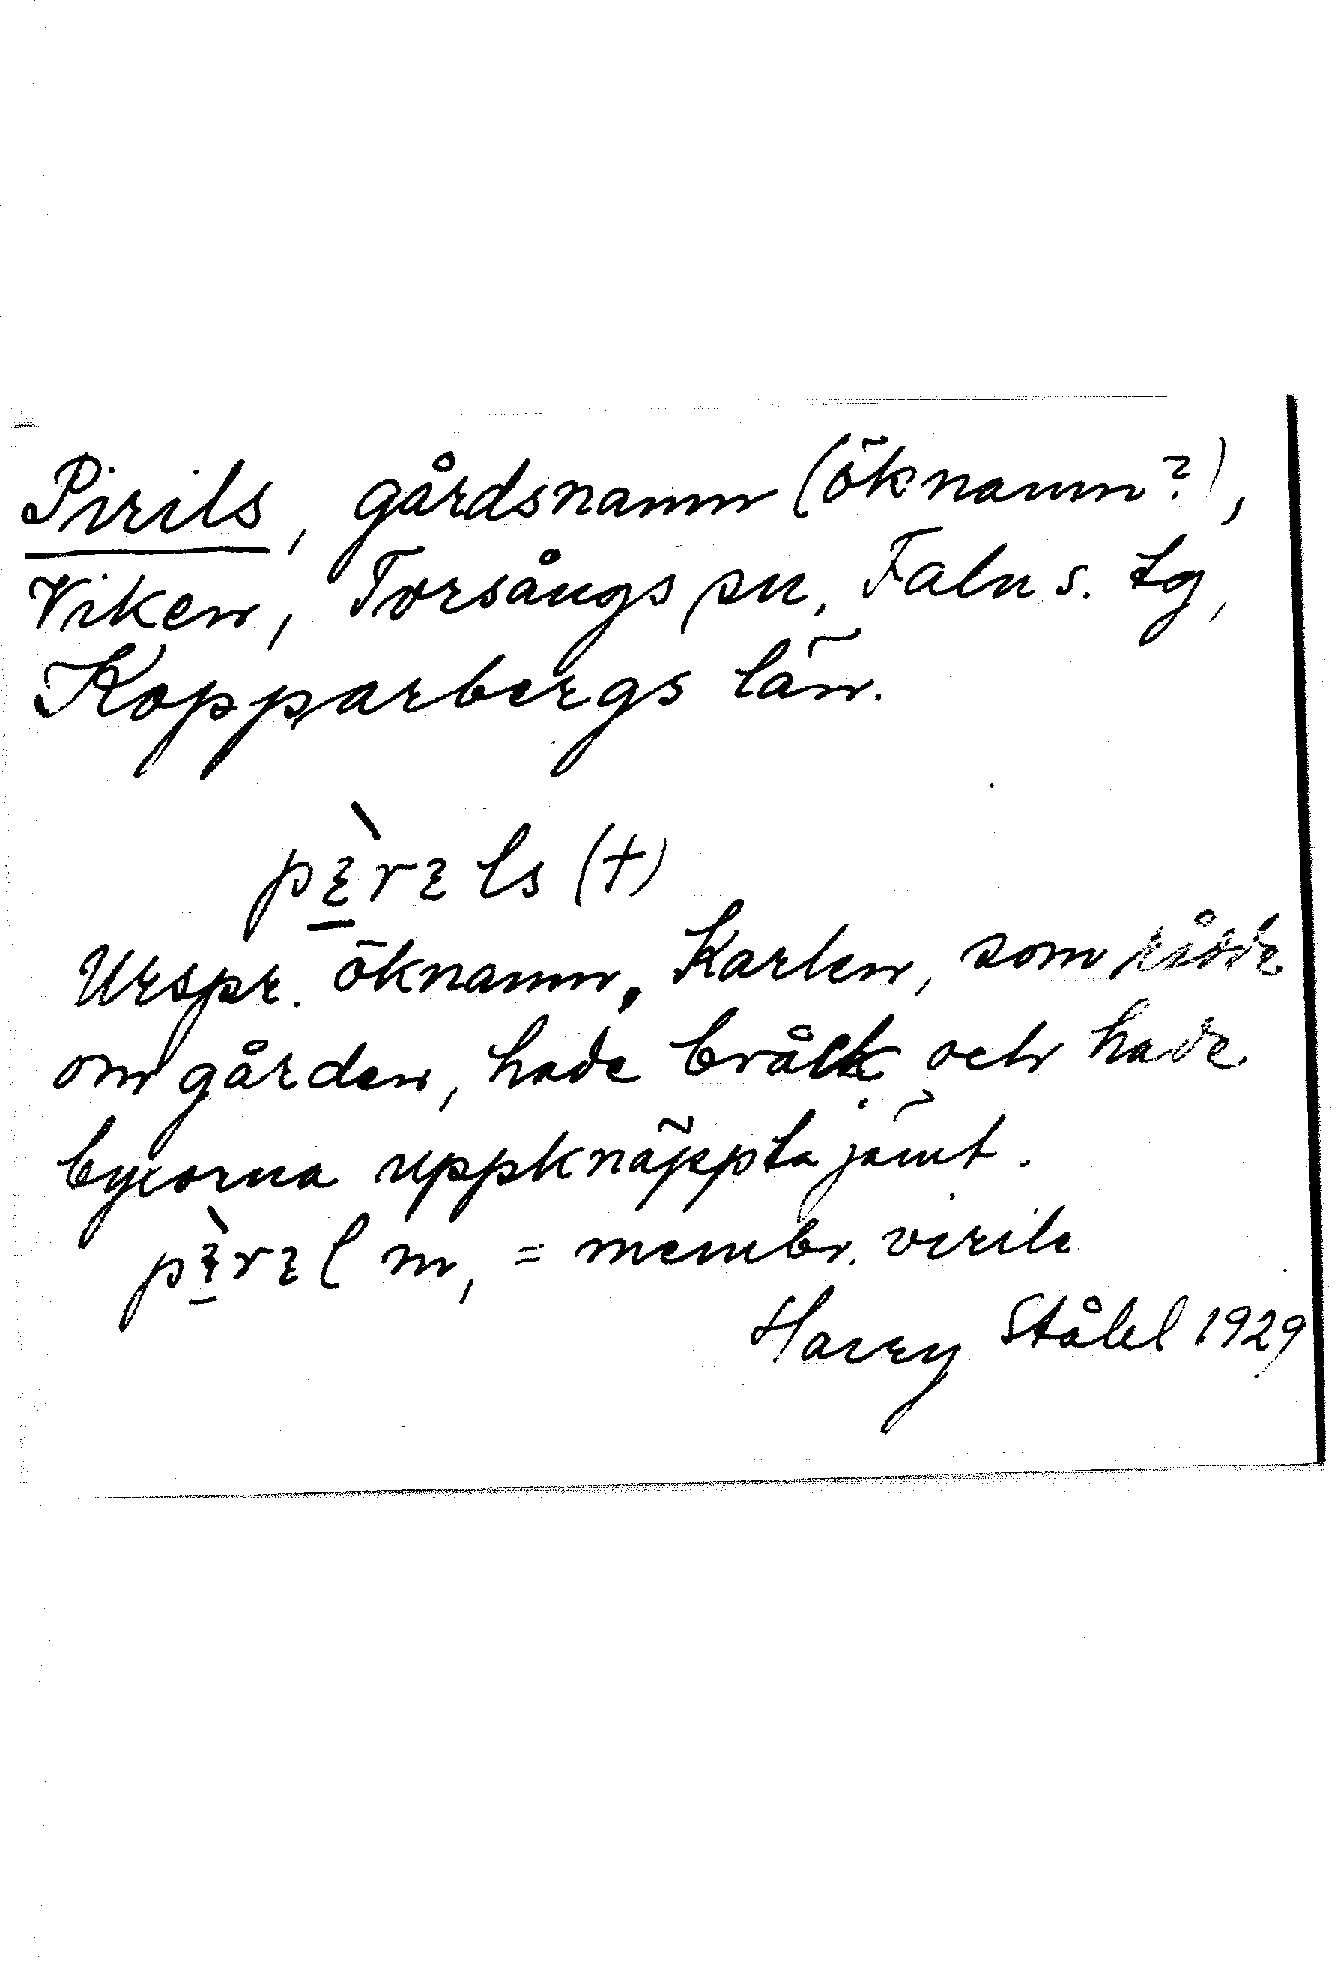 Pirils, gårdsnamn (öknamn?),
Viken, Torsångs sn, Falu s. tg,
Kopparbergs län.
pìrils (†)
Urspr. öknamn, Karlen, som rådde
om gården, hade bråck och hade
byxorna uppknäppta jämt.
pìril m, = membr. virile
Harry Ståhl 1929